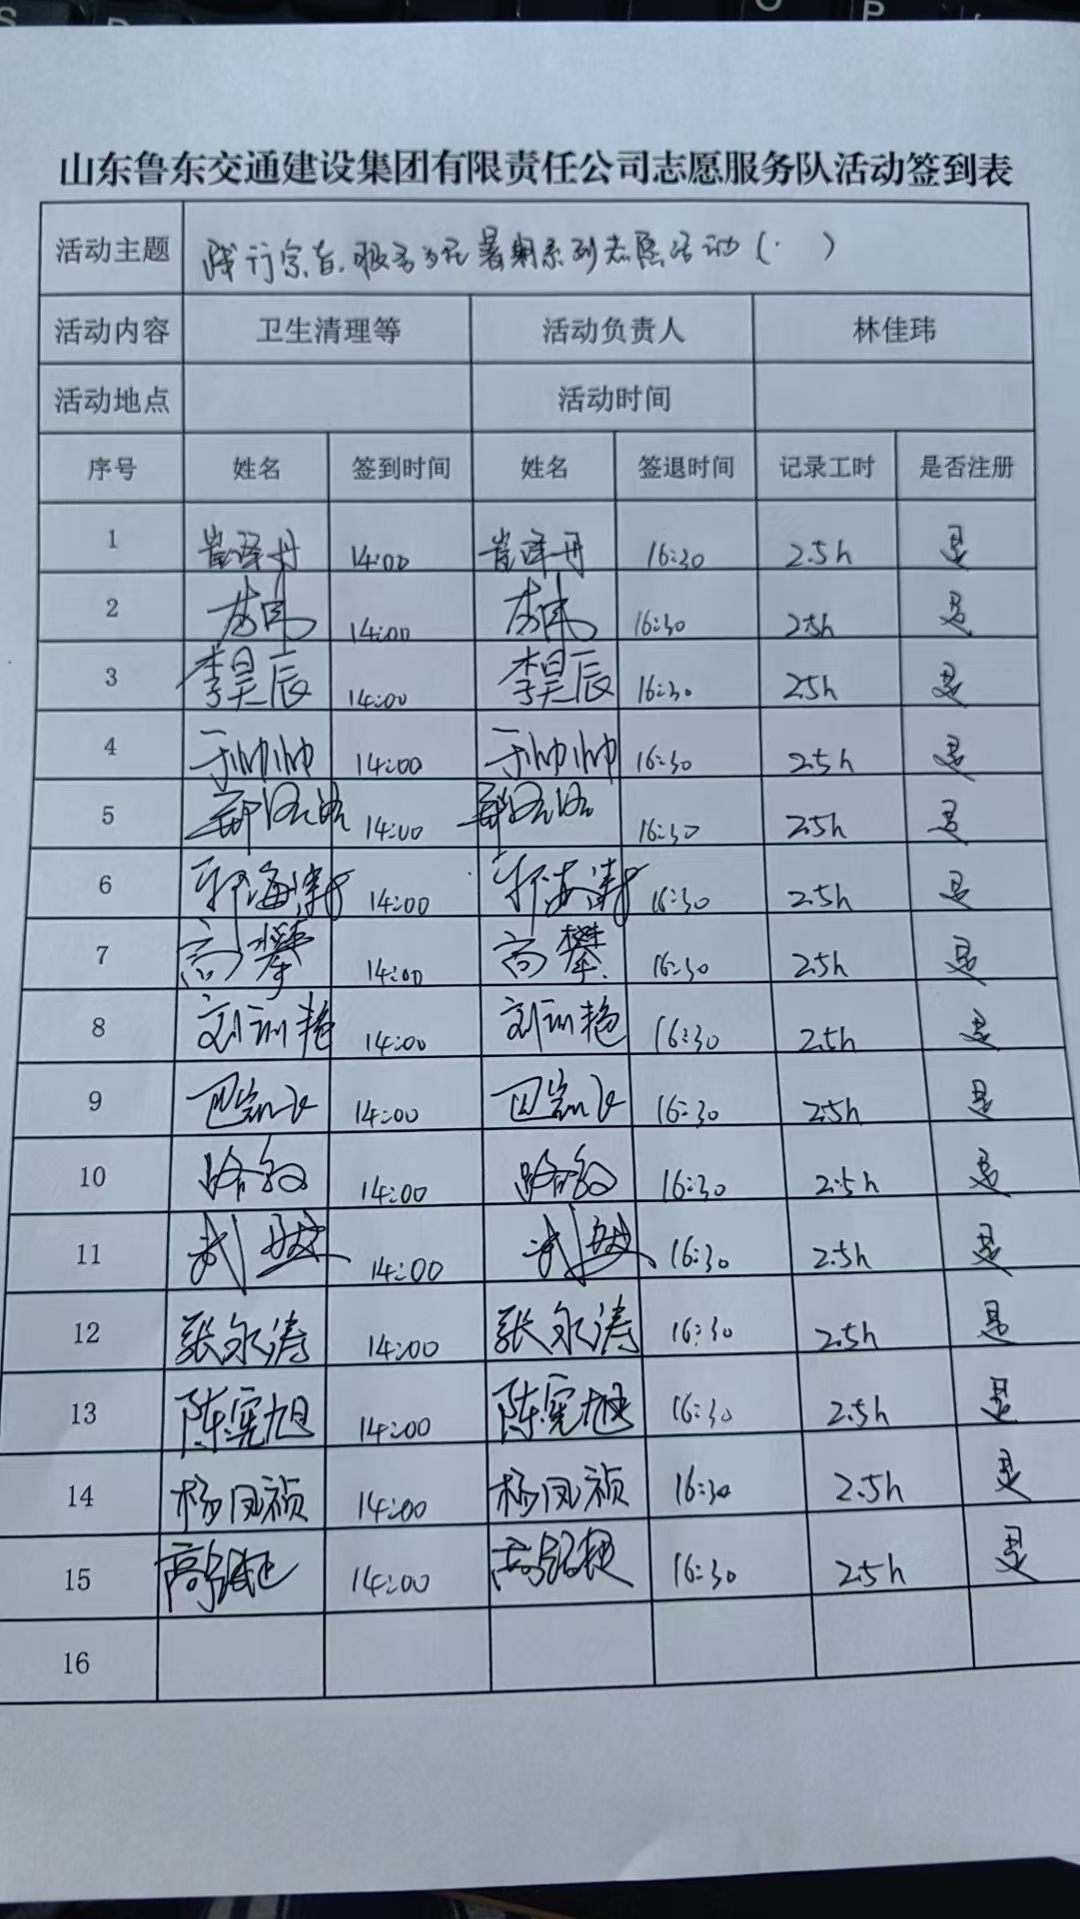 山东鲁东交通建设集团有限责任公司志愿服务队活动签到表
活动主题 践行宗旨.服务为民暑期系列志愿活动( )
活动内容 卫生清理等 活动负责人 林佳玮
活动地点 活动时间
序号 姓名 签到时间 姓名 签退时间 记录工时 是否注册
1 崔泽丹 14:00 崔泽丹 16:30 2.5h 是
2 14:00 16:30 2.5h 是
3 李昊辰 14:00 李昊辰 16:30 2.5h 是
4 于帅帅 14:00 于帅帅 16:30 2.5h 是
5 14:00 16:30 2.5h 是
6 郭海涛 14:00 郭海涛 16:30 2.5h 是
7 高攀 14:00 高攀 16:30 2.5h 是
8 刘训艳 14:00 刘训艳 16:30 2.5h 是
9 14:00 16:30 2.5h 是
10 路敏 14:00 路敏 16:30 2.5h 是
11 武 14:00 武 16:30 2.5h 是
12 张永涛 14:00 张永涛 16:30 2.5h 是
13 陈宪旭 14:00 陈宪旭 16:30 2.5h 是
14 杨凤祯 14:00 杨凤祯 16:30 2.5h 是
15 高 14:00 高 16:30 2.5h 是
16